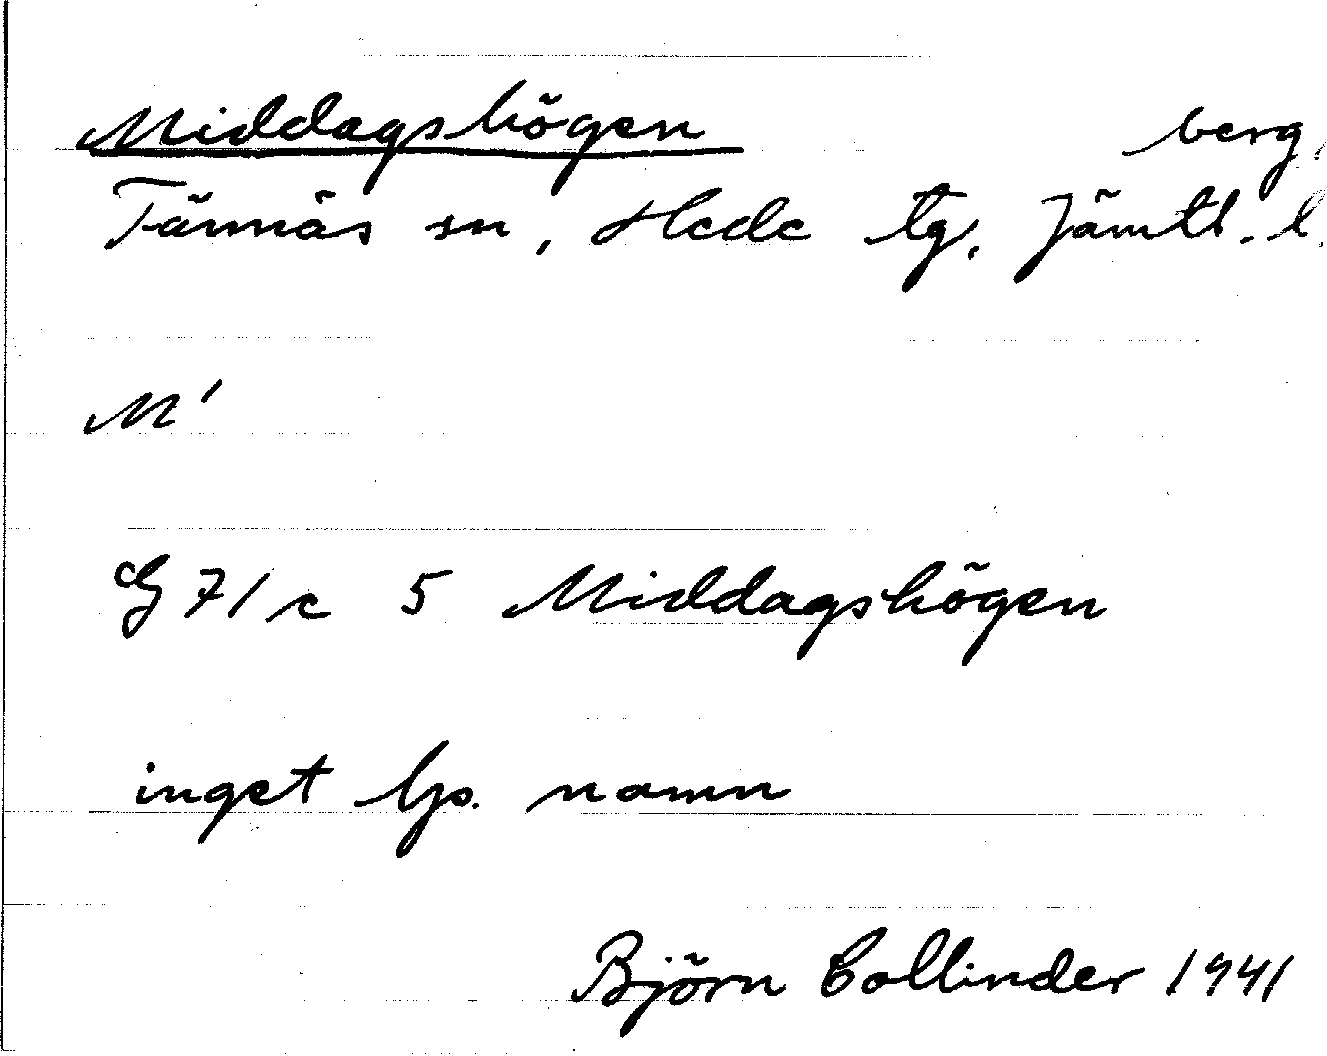 Middagshögen berg,
Tännäs sn, Hede tg, Jämtl. l.
M'
G 71 c 5 Middagshögen
inget lp. namn
Björn Collinder 1941